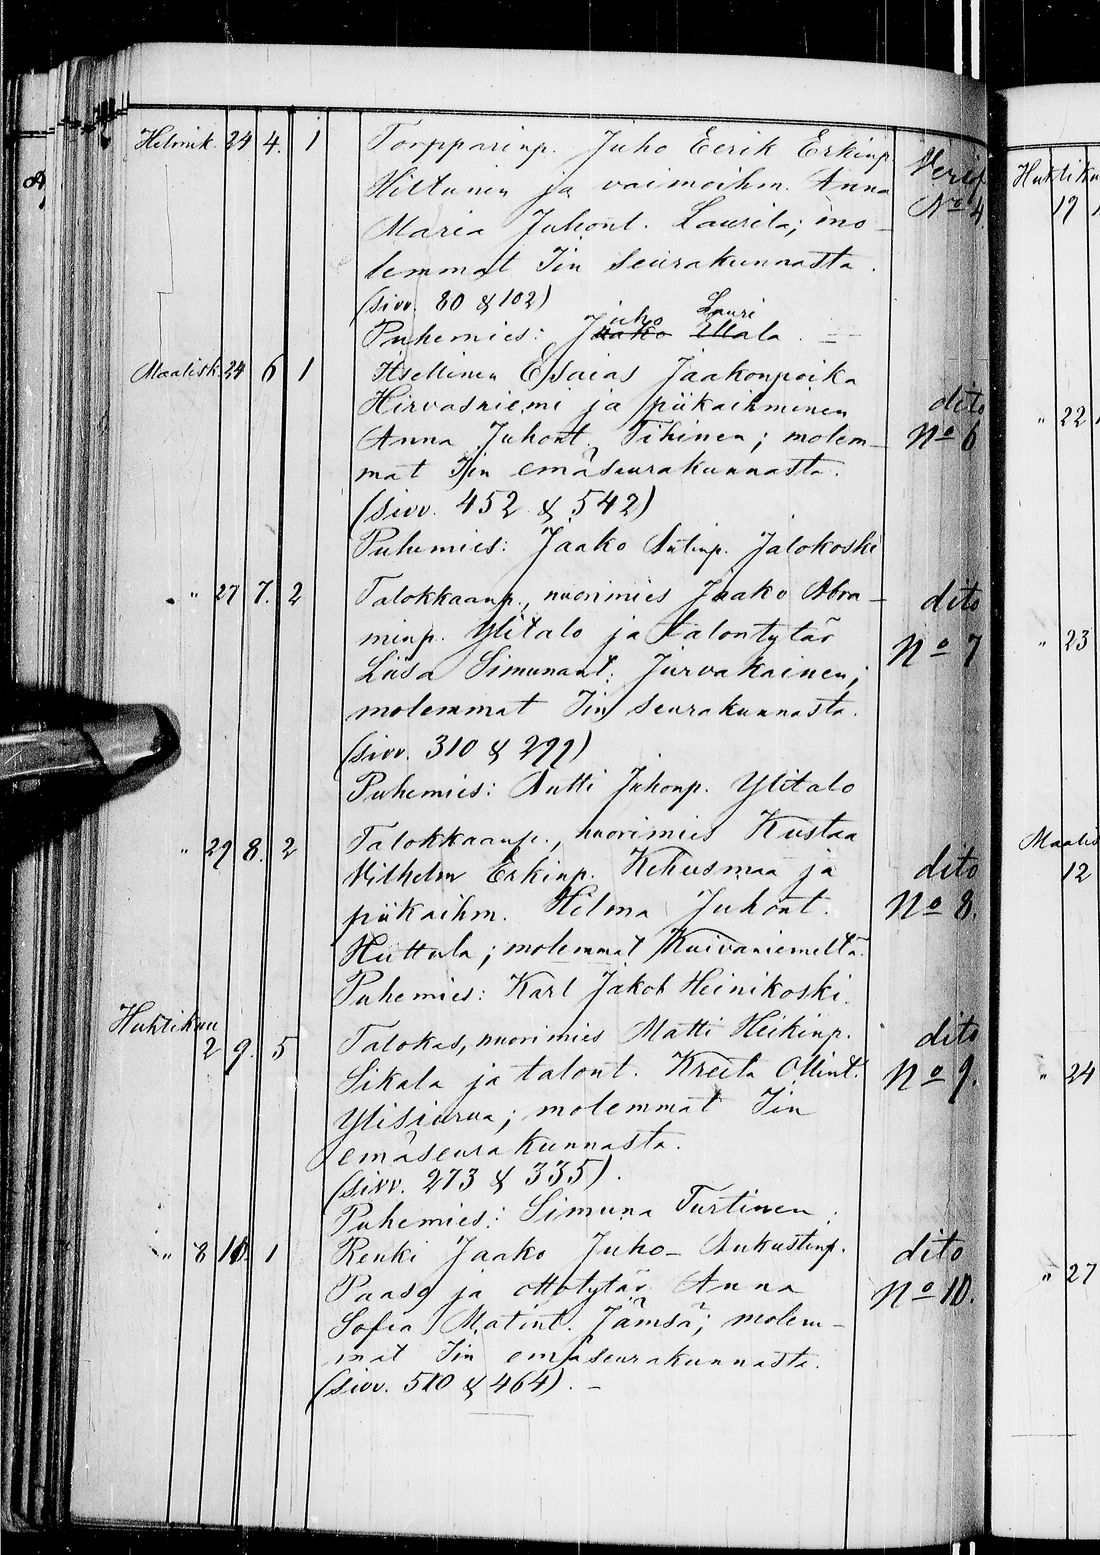 Helmik. 24 4. 1 Torpparinp. Juho Eerik Erkinp. Verif.
Hiltunen ja vaimoihm. Anna No 4.
Maria Juhont. Laurila; mo-
lemmat Iin seurakunnasta.
(sivv. 80 & 102)
juho Lauri
Puhemies: Jaako Ulala. —
Maalisk. 24 6 1 Itsellinen Esaias Jaakonpoika
Hirvasniemi ja piikaihminen dito
Anna Juhont. Tihinen; molem- No 6
mat Iin emäseurakunnasta.
(sivv. 452 & 542)
Puhemies: Jaako Antinp. Jalokoski
" 27 7. 2 Talokkaanp., nuorimies Jaako Abra- dito
minp. Ylitalo ja talontytär No 7
Liisa Simunant. Jurvakainen;
molemmat Iin seurakunnasta.
(sivv. 310 & 299)
Puhemies: Antti Juhonp. Ylitalo
" 29 8. 2 Talokkaanp., nuorimies Kustaa
Vilhelm Erkinp. Kehusmaa ja dito
piikaihm. Hilma Juhont. No 8.
Huttula; molemmat Kuivaniemeltä.
Puhemies: Karl Jakob Heinikoski.
Huhtikuu
2 9. 5 Talokas, nuorimies Matti Heikinp. dito
Sikala ja talont. Kreeta Ollint. No 9.
Ylisiurua; molemmat Iin
emäseurakunnasta.
(sivv. 273 & 335).
Puhemies: Simuna Turtinen.
" 8 10. 1 Renki Jaako Juho-Aukustinp. dito
Paaso ja ottotytär Anna No 10.
Sofia Matint. Jämsä; molem-
mat Iin emäseurakunnasta.
(sivv. 510 & 464). —
19
" 22
" 23
12
" 24
" 27